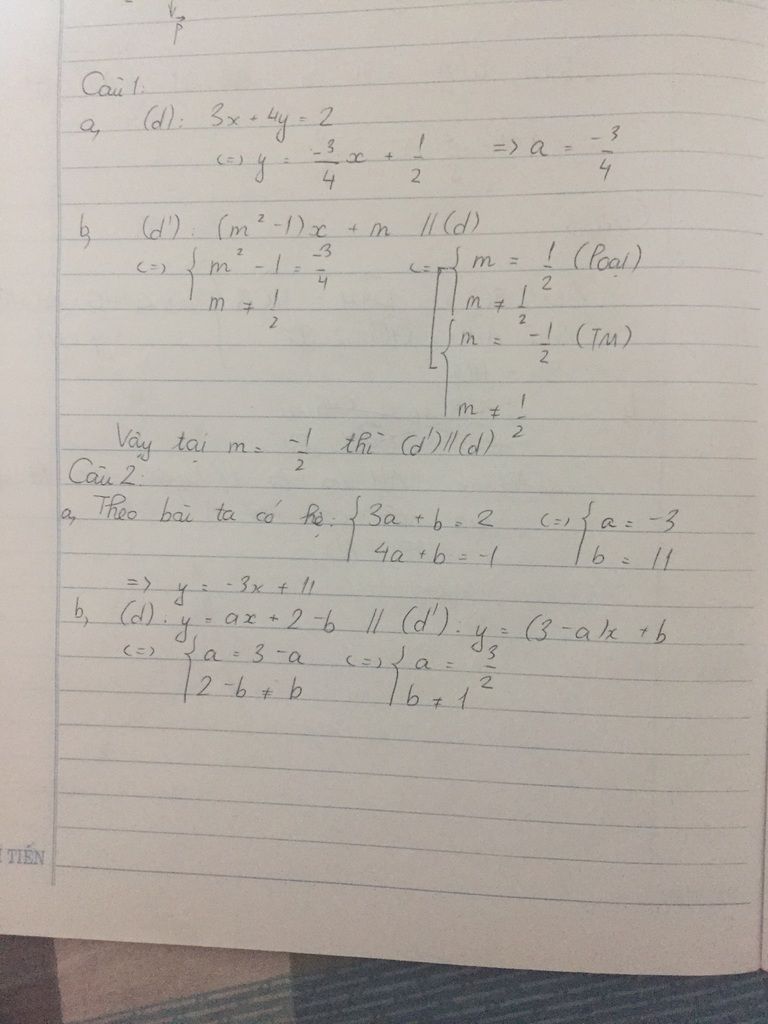 p
Câu 1:
a, (d): 3x + 4y = 2
<=> y = -3/4 x + 1/2 => a = -3/4
b, (d'): (m² - 1)x + m // (d)
<=> { m² - 1 = -3/4 <=> [ { m = 1/2 (loại)
m ≠ 1/2 m ≠ 1/2
{ m = -1/2 (TM)
m ≠ 1/2
Vậy tại m = -1/2 thì (d') // (d)
Câu 2:
a, Theo bài ta có hệ: { 3a + b = 2 <=> { a = -3
4a + b = -1 b = 11
=> y = -3x + 11
b, (d): y = ax + 2 - b // (d'): y = (3 - a)x + b
<=> { a = 3 - a <=> { a = 3/2
2 - b ≠ b b ≠ 1
TIẾN